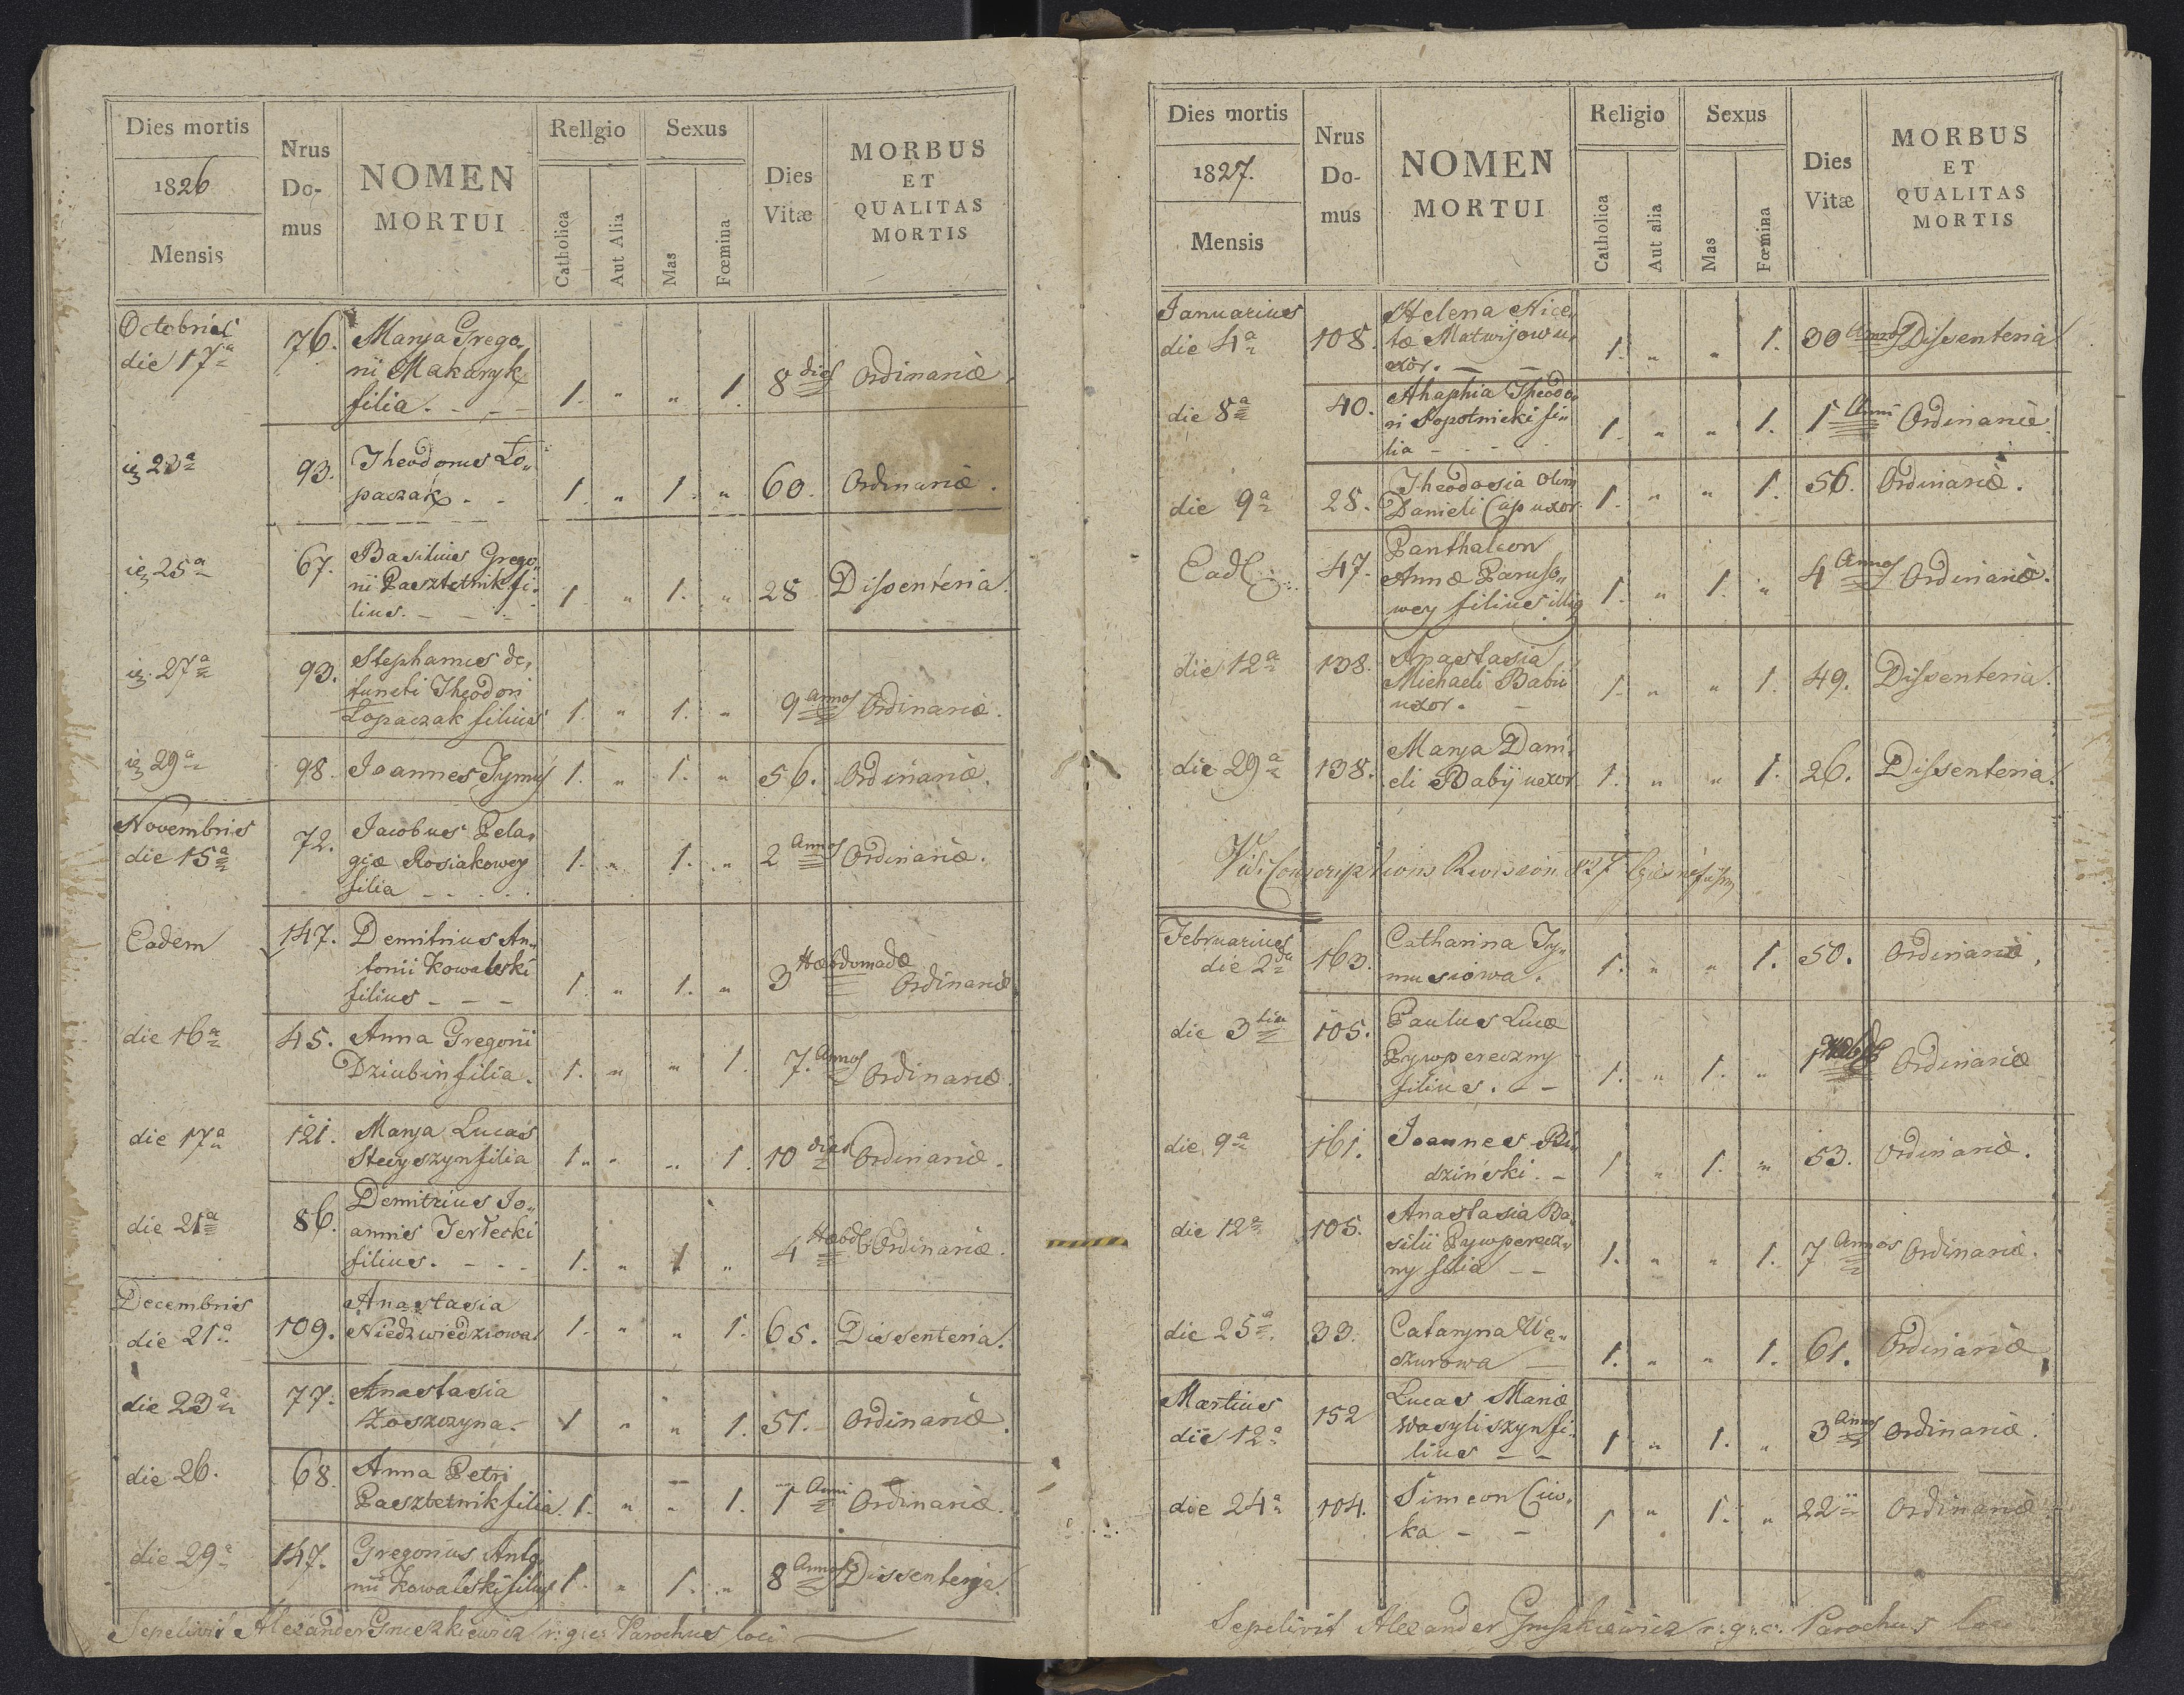 Dies mortis
1826
Mensis
Nrus
Do-
mus
NOMEN
MORTUI
Rellgio
Catholica
Aut Alia
Sexus
Mas
Fœmina
Dies
Vitæ
MORBUS
ET
QUALITAS
MORTIS
Octobries
die 17a
76.
Marya Grego„
rii Makaryk
filia. - - -
1. „ „ 1. 8 dies Ordinariæ.
23a
93.
Theodorus Lo„
paczak. - -
1. „ 1. „ 60. Ordinariæ.
25a
67.
Basilius Grego„
rii Pasztetnik fi„
lius. - - -
1 „ 1. „ 28 Dissenteria.
27a
93.
Stephanus de„
functi Theodori
Lopaczak filius
1. „ 1. „ 9 Annos Ordinariæ.
29a
98. Joannes Tymuś 1. „ 1. „ 56. Ordinariæ.
Novembries
die 15a
72.
Jacobus Pela„
giæ Rosiakowey
filia - - - - -
1. „ 1. „ 2 Annos Ordinariæ.
Eadem
147.
Demitrius An„
tonii Kowalski
filius - - -
1. „ 1. „ 3 Hæbdomadæ Ordinariæ
die 16a
45. Anna Gregorii
Dziubin filia.
1. „ „ 1. 7. Annos Ordinariæ.
die 17a
121. Marya Lucas
Stecyszyn filia
1. „ „ 1. 10 dies Ordinariæ.
die 21a
86.
Demitrius Jo„
annis Jerłecki
filius. - - -
1. „ 1 „ 4 Hæbd. Ordinariæ.
Decembries
die 21a
109.
Anastasia
Niedzwiedziowa
1. „ „ 1. 65. Dissenteria.
die 23a
77. Anastasia
Zoszczyna.
1 „ „ 1. 51. Ordinariæ.
die 26.
68 Anna Petri
Pasztetnik filia.
1. „ „ 1. 1 Anni Ordinariæ.
die 29a
147. Gregorius Anto„
nii Kowalski filius
1. „ 1. „ 8 Annos Dissenterya.
Sepelivit Alexander Gruszkiewicz r: g: c: Parochus loci
Dies mortis
1827.
Mensis
Nrus
Do-
mus
NOMEN
MORTUI
Religio
Catholica
Aut alia
Sexus
Mas
Fœmina
Dies
Vitæ
MORBUS
ET
QUALITAS
MORTIS
Januarius
die 4a
108.
Helena Nice„
tæ Matwijow u„
xor. - -
1. „ „ 1. 30 Annos Dissenteria
die 8a
40.
Ahaphia Theodo„
ri Sopotnicki fi„
lia - - - -
1. „ „ 1. 1 Anni Ordinariæ.
die 9a
28.
Theodosia olim
Danieli Cap uxor.
1. „ „ 1. 56. Ordinariæ.
Ead.
47.
Panthaleon
Annæ Paruso„
wey filius illig
1. „ 1. „ 4 Annos Ordinariæ.
die 12a
138.
Anastasia
Michaeli Babii
uxor. -
1. „ „ 1. 49. Dissenteria.
die 29a
138.
Marya Dani„
eli Babij uxor
1. „ „ 1. 26. Dissenteria.
Vidi Conscriptions Revision 827
Februarius
die 2da
163.
Catharina Ty„
musiowa.
1. „ „ 1. 50. Ordinariæ.
die 3tia
105.
Paulus Lucæ
Pywpereczny
filius. - -
1. „ 1. „ Ordinariæ
die 9a
161.
Joannes Ru„
dzinski. -
1 „ 1. „ 53. Ordinariæ.
die 12a
105.
Anastasia Ba„
silii Pywperecz„
ny filia - -
1. „ „ 1. 7 Annos Ordinariæ.
die 25a
33.
Cataryna We„
szurowa -
1. „ „ 1. 61. Ordinariæ
Martius
die 12a
152
Lucas Mariæ
Wasyliszyn fi„
lius - -
1 „ 1. „ 3 Annos Ordinariæ.
die 24a
104.
Simeon Ciw„
ka - -
1 „ 1. „ 22 Ordinariæ
Sepelivit Alexander Gruszkiewicz r: g: c: Parochus loci